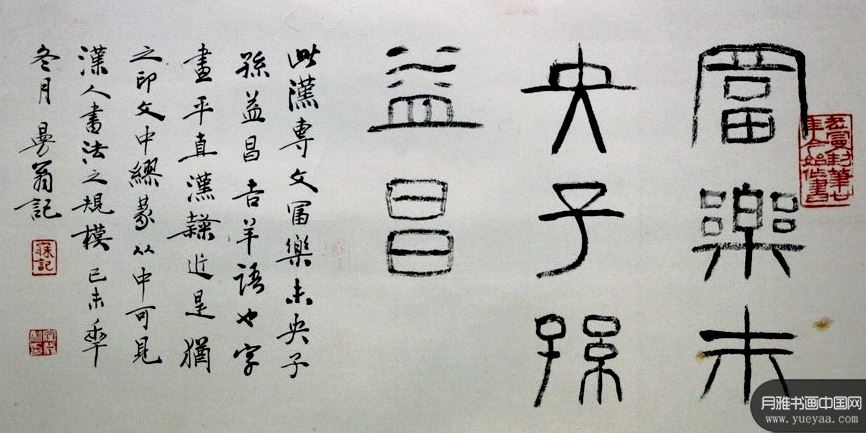 老曼封筆七
年今始作書
富樂未
央子孫
益昌
此漢專文冨樂未央子
孫益昌吉羊語也字
畫平直漢隸近是猶
之印文中繆篆从中可見
漢人書法之規模己未年
冬月曼翁記
月雅书画中国网
www.yueyaa.com